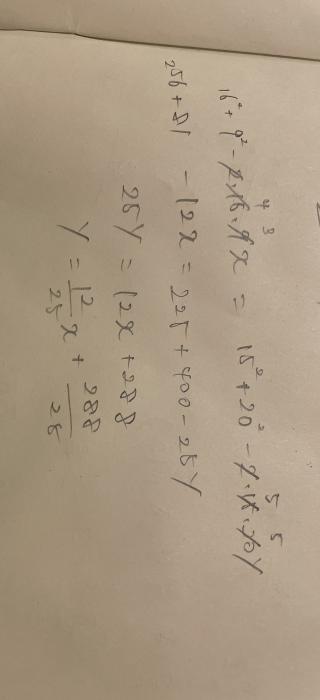 16² + 9² - 2·16·9x = 15² + 20² - 2·15·20y
4 3 5 5
256 + 81 - 12x = 225 + 400 - 25y
25y = 12x + 288
y = 12/25 x + 288/25